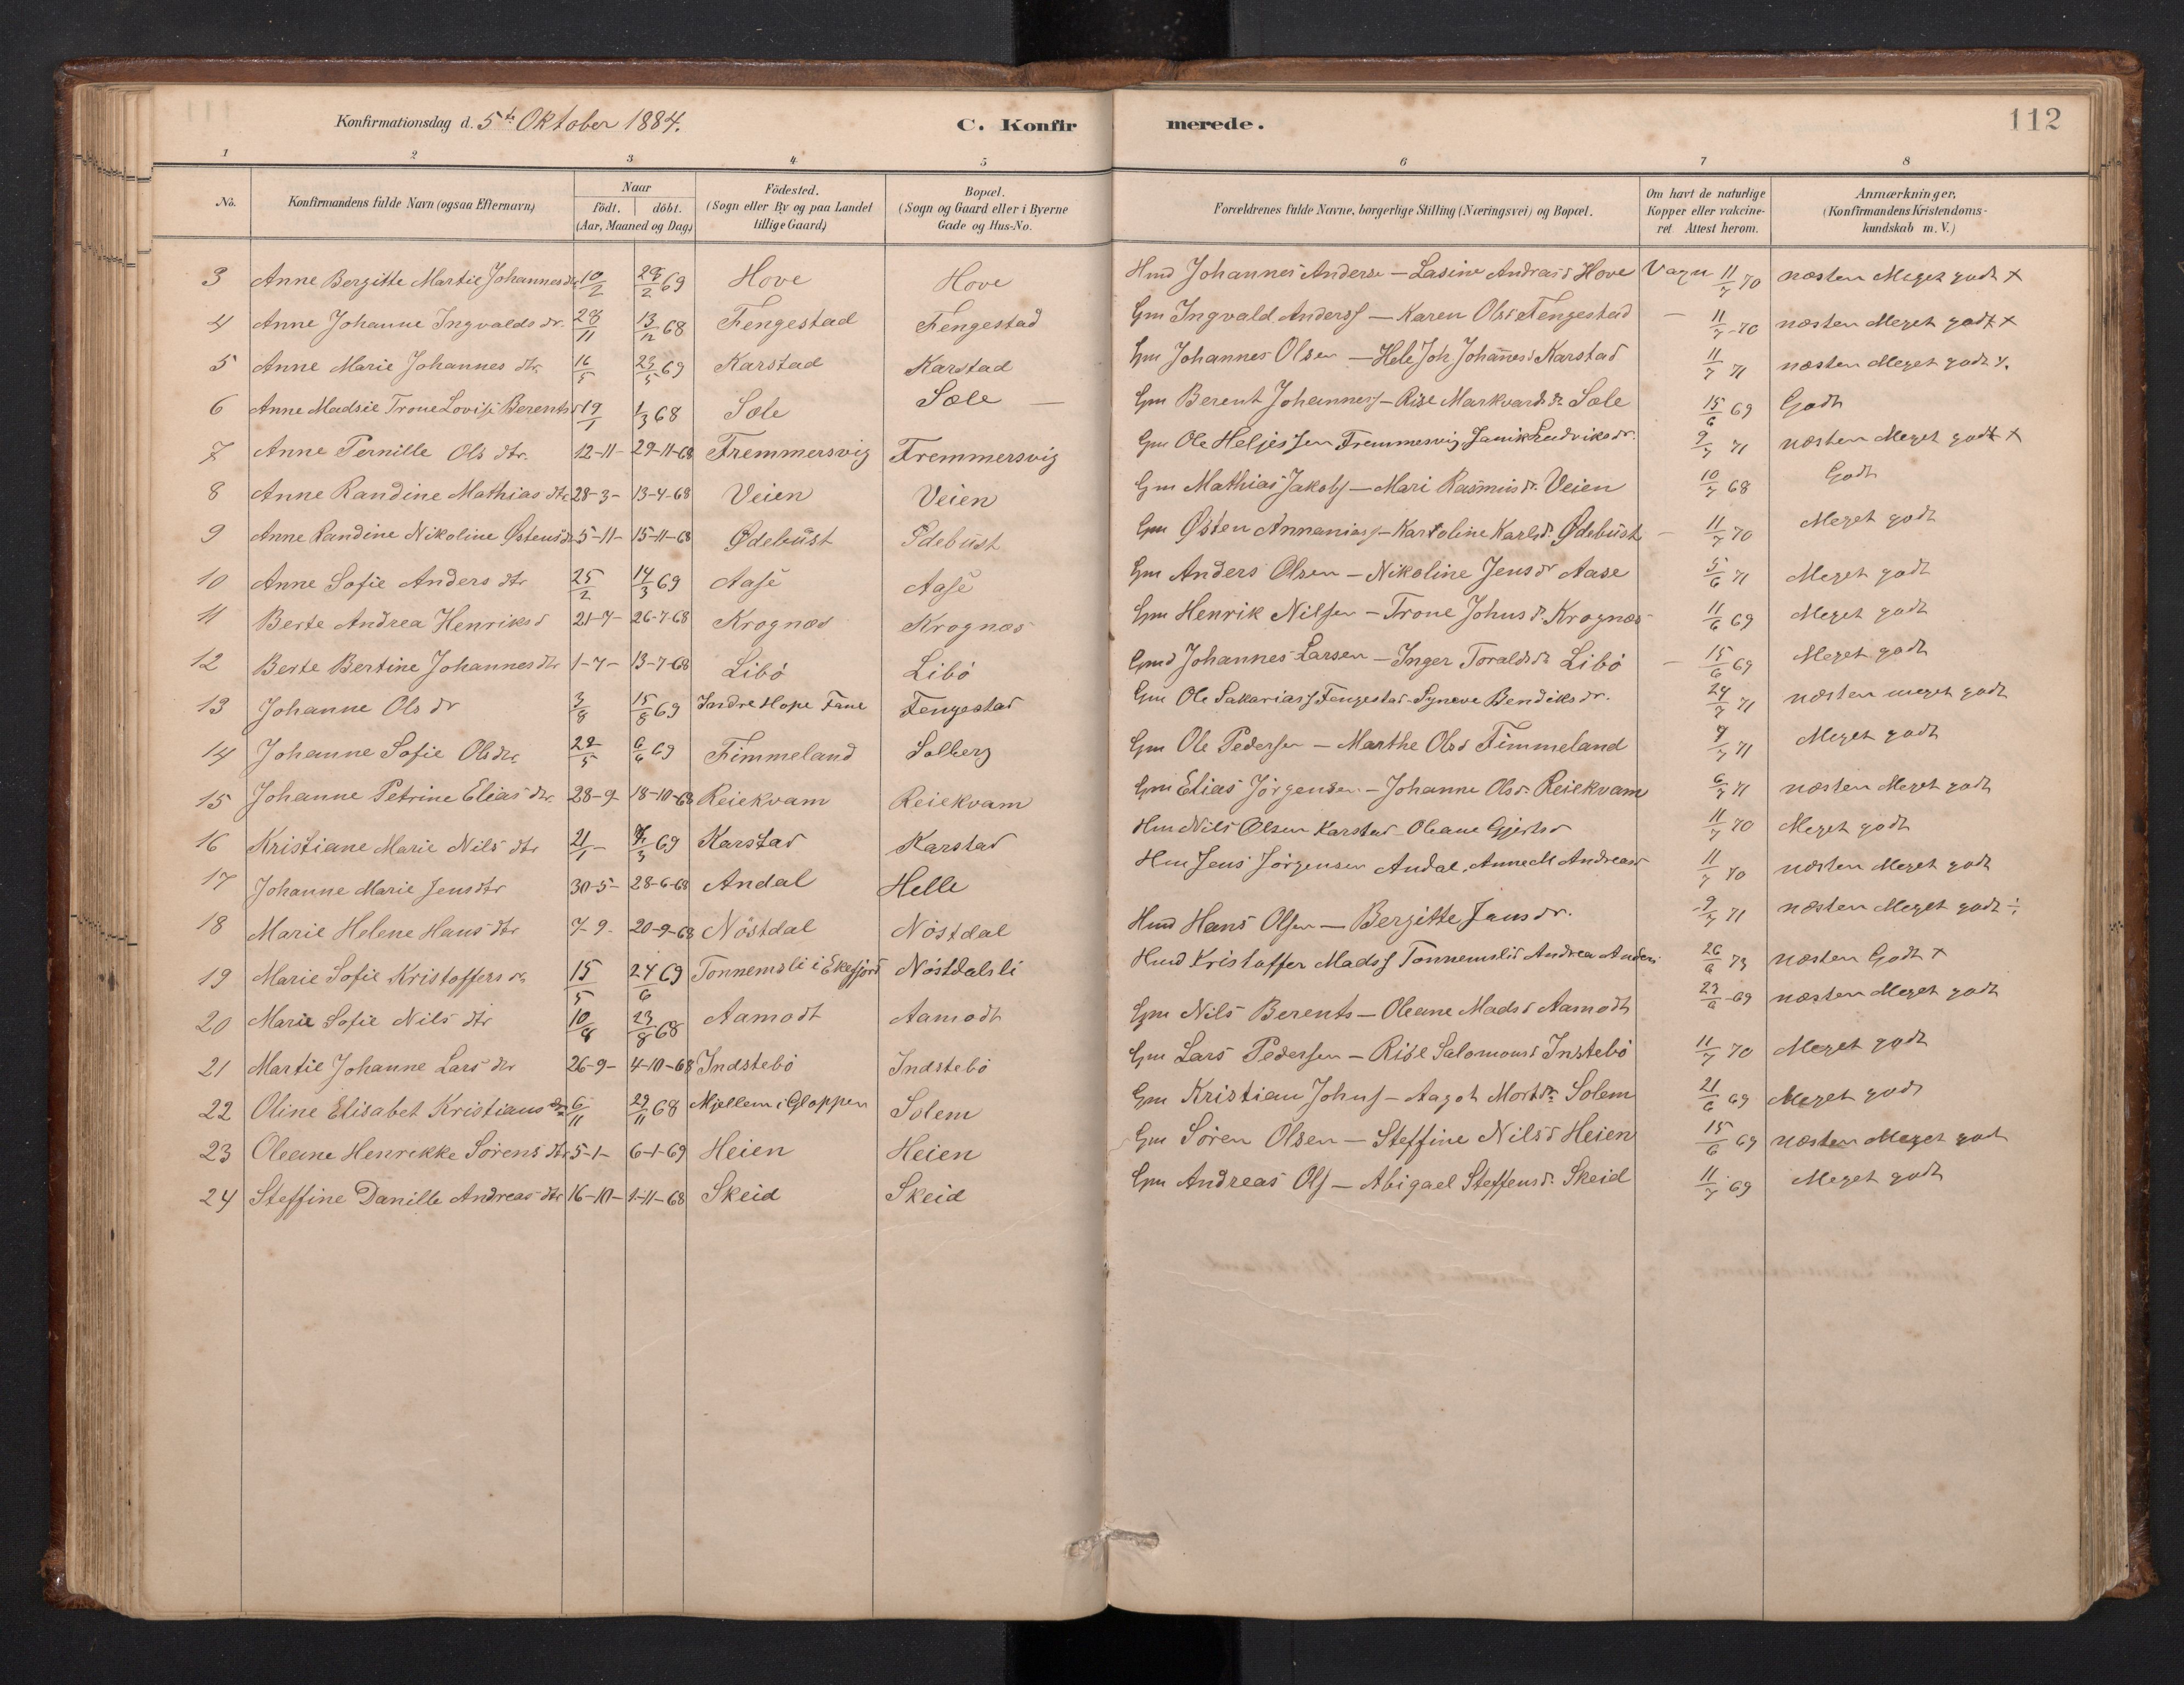 Konfirmationsdag d. 5te Oktober 1884. C. Konfirmerede. 112
1 2 3 4 5 6 7 8
No. Konfirmandens fulde Navn (ogsaa Efternavn) Naar födt. döbt. (Aar, Maaned og Dag) Födested. (Sogn eller By og paa Landet tillige Gaard) Bopæl. (Sogn og Gaard eller i Byerne Gade og Hus-No. Forældrenes fulde Navne, borgerlige Stilling (Næringsvei) og Bopæl. Om havt de naturlige Kopper eller vakcineret Attest herom. Anmærkninger, (Konfirmandens Kristendomskundskab m. V.)
3 Anne Bergitte Martie Johannesdtr 10/2 28/2 69 Hove Hove Hmd Johannes Anderse - Lasine Andreasd Hove Vaqu 11/7 70 næsten Meget godt +
4 Anne Johanne Ingvalds dr. 28/11 13/12 68 Fengestad Fengestad Gm Ingvald Anderss - Karen Olsd Fengestad - 11/7-70 næsten Meget godt +
5 Anne Marie Johannes dtr 16/5 23/5 69 Karstad Karstad Gm Johannes Olsen - Hele Joh Johañesd Karstad 11/7 71 næsten Meget godt
6 Anne Madsie Trone Lovise Berentsd 19/1 1/3 68 Sæle Sæle - Gm Berent Johanness - Rise Markvards dr Sæle 15/6 69 Godt
7 Anne Pernille Ols dtr. 12-11- 29-11-68 Fremmersvig Fremmersvig Gm Ole Heljessen Fremmersvig Janik Ludviksdr. 9/7 71 næsten Meget godt +
8 Anne Randine Mathias dtr 28-3- 13-4-68 Veien Veien Gm Mathias Jakobs - Mari Rasmusdr. Veien 10/7 68 Godt
9 Anne Randine Nikoline Østensdr 5-11- 15-11-68 Ødebust Ødebust Gm Østen Annanias - Karoline Karlsd. Ødebust - 11/7 70 Meget godt
10 Anne Sofie Anders dtr 25/2 14/3 69 Aase Aase Gm Anders Olsen - Nikoline Jensdr Aase 5/6 71 Meget godt
11 Berte Andrea Henriksd 21-7- 26-7-68 Krognæs Krognæs Gm Henrik Nilsen - Trone Johnsd. Krognæs 11/6 69 Meget godt
12 Berte Bertine Johannesdtr 1-7- 13-7-68 Libö Libö Gmd Johannes Larsen - Inger Toraldsdr Libö - 15/6 69 Meget godt
13 Johanne Ols dr 3/8 15/8 69 Indre Hope Fane Fengestad Gm Ole Sakariass Fengestad - Syneve Bendiksdr. 24/7 71 næsten meget godt
14 Johanne Sofie Olsdtr 22/5 6/6 69 Fimmeland Solberg Gm Ole Pedersen - Marthe Olsd Fimmeland 9/7 71 Meget godt
15 Johanne Petrine Elias dtr. 28-9- 18-10-68 Reiekvam Reiekvam Gm Elias Jörgensen - Johanne Olsd. Reiekvam 6/7 71 næsten Meget godt
16 Kristiane Marie Nils dtr 21/1 - 7/3 69 Karstad Karstad Hm Nils Olsen Karstad - Oleane Gjertsd 11/7 70 Meget godt
17 Johanne Marie Jensdtr 30-5- 28-6-68 Andal Helle Hm Jens Jörgensen Andal, Anne M Andreasd 11/7 70 næsten Meget godt
18 Marie Helene Hans dtr 7-9- 20-9-68 Nöstdal Nöstdal Hmd Hans Olsen - Bergitte Jansdr. 9/7 71 næsten Meget godt ÷
19 Marie Sofie Kristoffers dr 15/5 24/6 69 Tonnemsli i Ekefjord Nöstdalsli Hmd Kristoffer Madss Tonnemsli Andrea Anders 26/6 73 næsten Godt +
20 Marie Sofie Nils dtr 10/8 23/8 68 Aamodt Aamodt Gm Nils Berents - Oleane Madsd Aamodt 23/6-69 næsten Meget godt
21 Martie Johanne Lars dtr 26-9- 4-10-68 Indstebö Indstebö Gm Lars Pedersen - Rise Salomonsd Instebö 11/7 70 Meget godt
22 Oline Elisabet Kristians dtr 6/11 29/11 68 Mjellem i Gloppen Solem Gm Kristian Johns - Aagot Mortdr Solem 21/6 69 Meget godt
23 Oleane Henrikke Sörens dtr 5-1- 6-1-69 Heien Heien Gm Sören Olsen - Steffine Nilsd Heien 15/6 69 næsten Meget godt
24 Steffine Danille Andreas dtr 16-10- 1-11-68 Skeid Skeid Gm Andreas Ols - Abigael Steffensd. Skeid 11/7 69 Meget godt